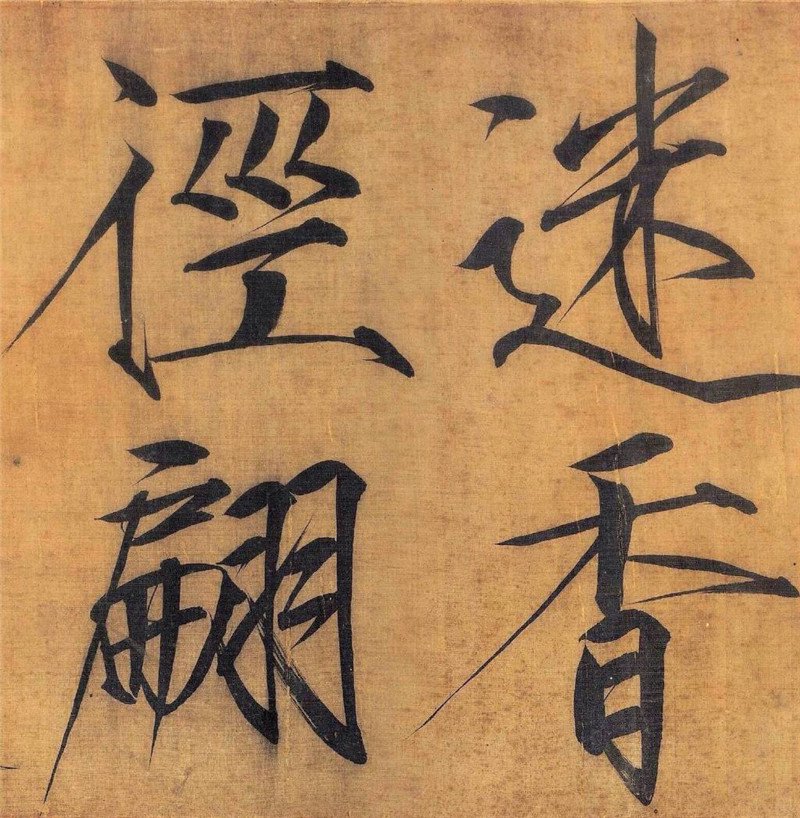 迷香
徑翩